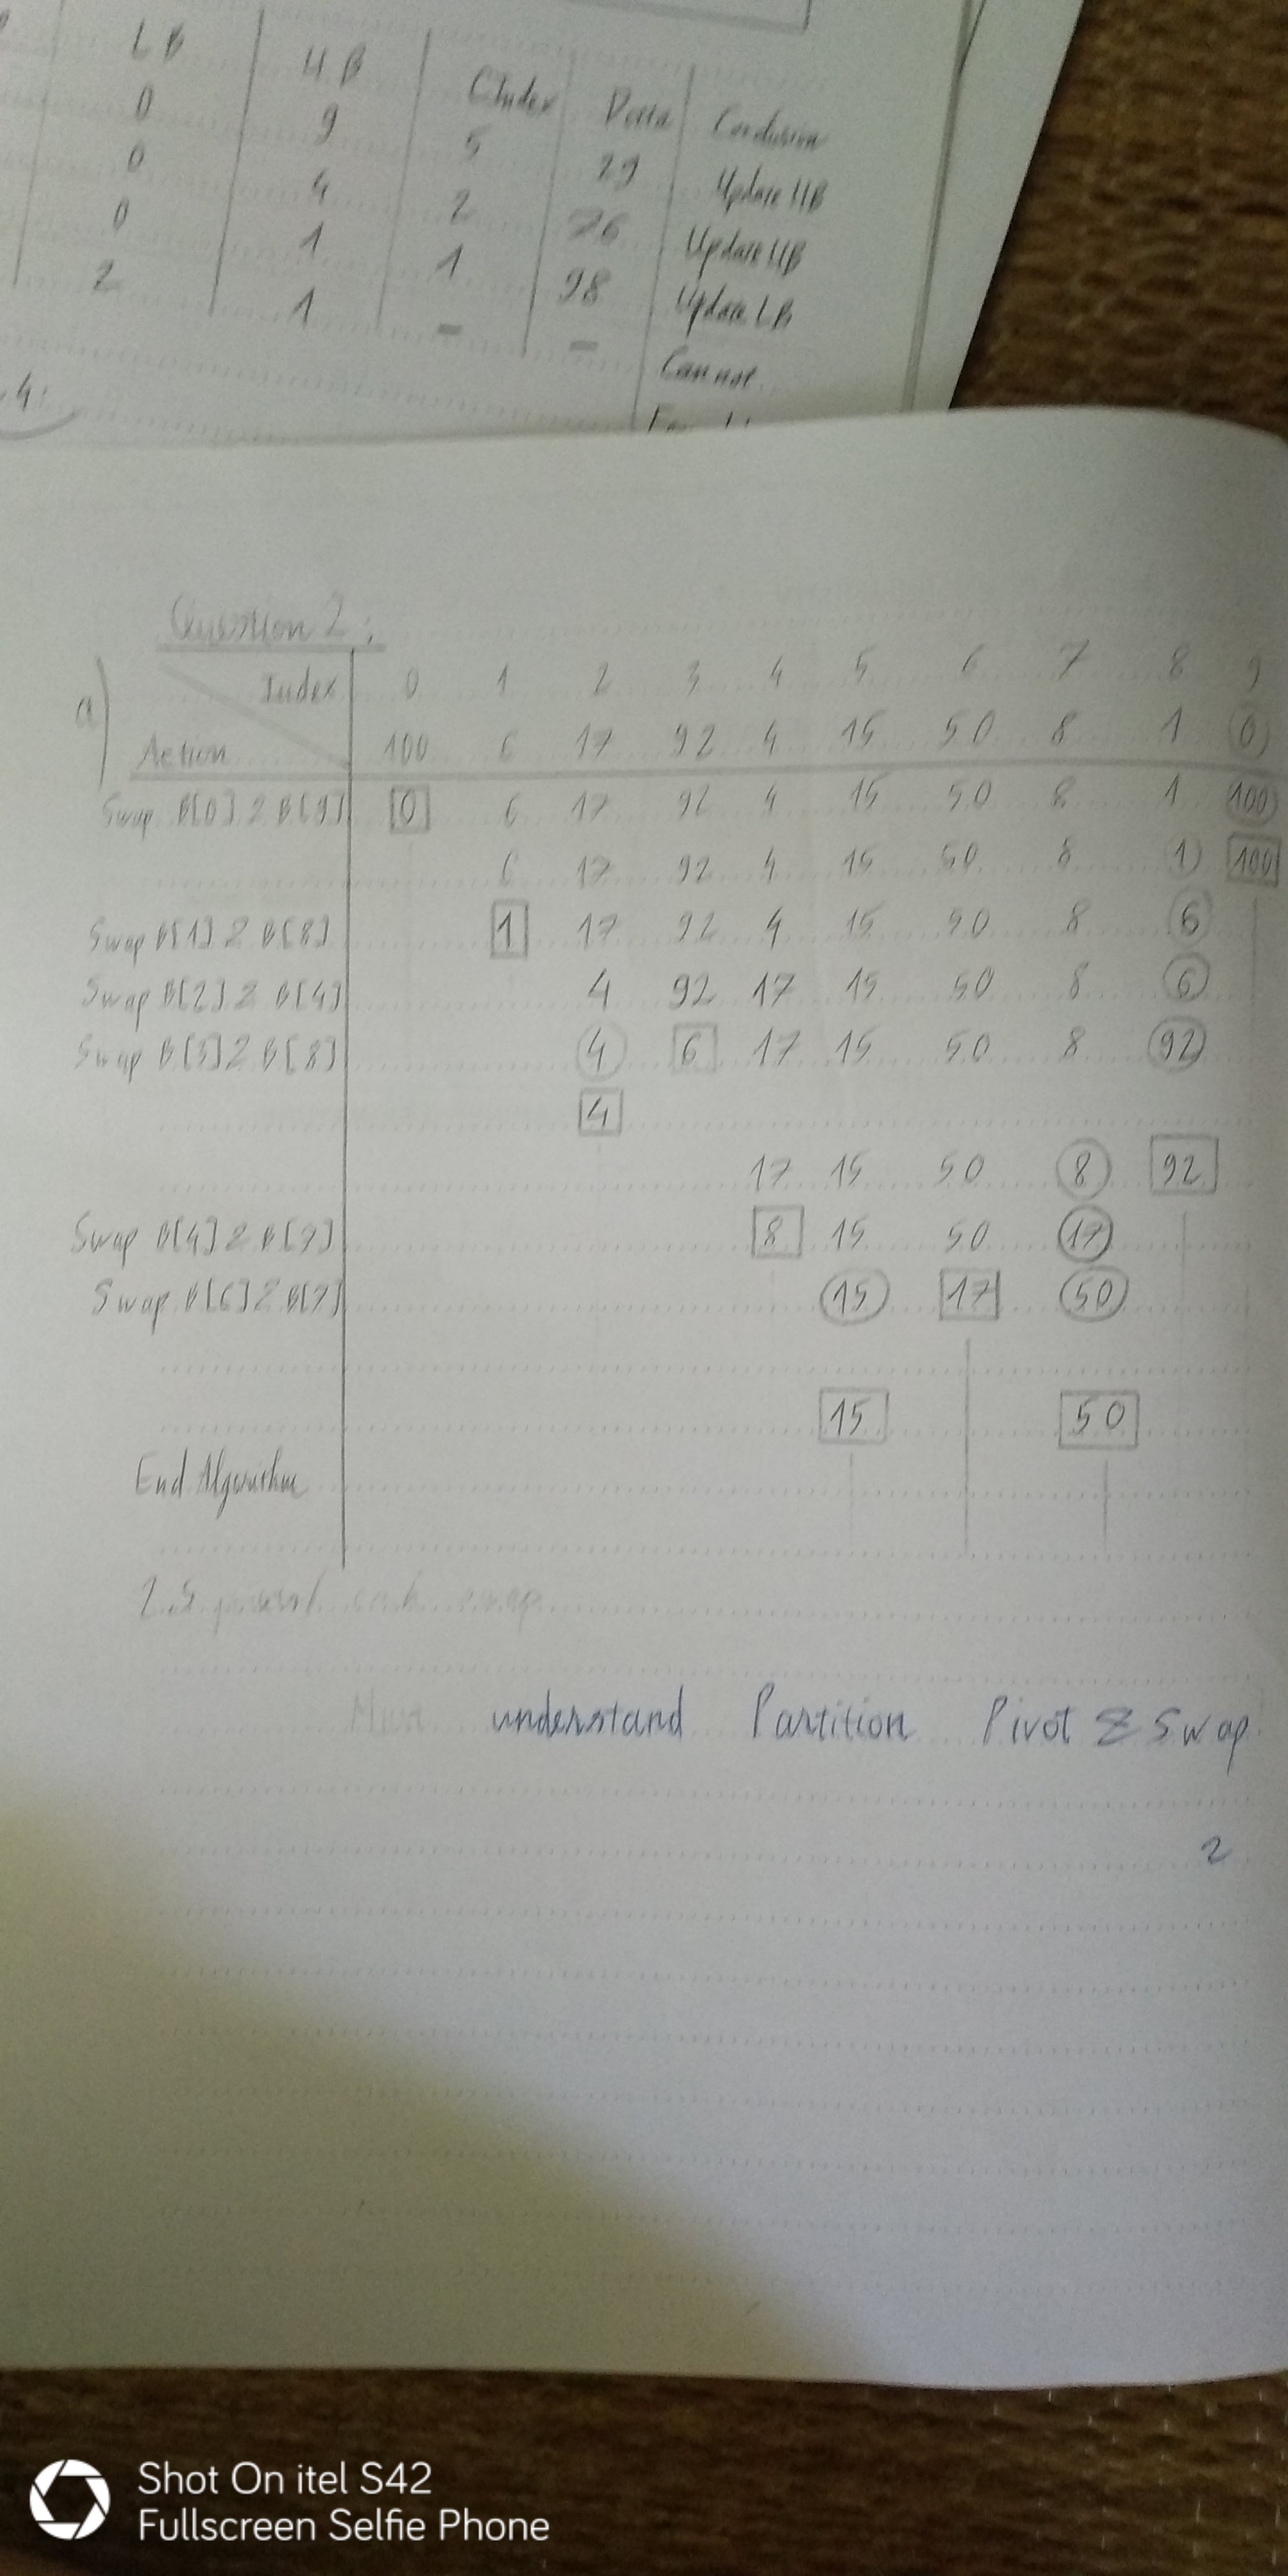 LB UB CIndex Delta Conclusion
0 9 5 29 Update UB
0 4 2 76 Update UB
0 1 1 98 Update LB
2 1 - - Cannot
4:
Question 2:
a) Index 0 1 2 3 4 5 6 7 8 9
Action 100 6 17 92 4 15 50 8 1 0
Swap B[0] & B[9] 0 6 17 92 4 15 50 8 1 100
6 17 92 4 15 50 8 1 100
Swap B[1] & B[8] 1 17 92 4 15 50 8 6
Swap B[2] & B[4] 4 92 17 15 50 8 6
Swap B[3] & B[8] 4 6 17 15 50 8 92
4
17 15 50 8 92
Swap B[4] & B[7] 8 15 50 17
Swap B[6] & B[7] 15 17 50
15 50
End Algorithm
swap
Must understand Partition Pivot & Swap
2
Shot On itel S42
Fullscreen Selfie Phone